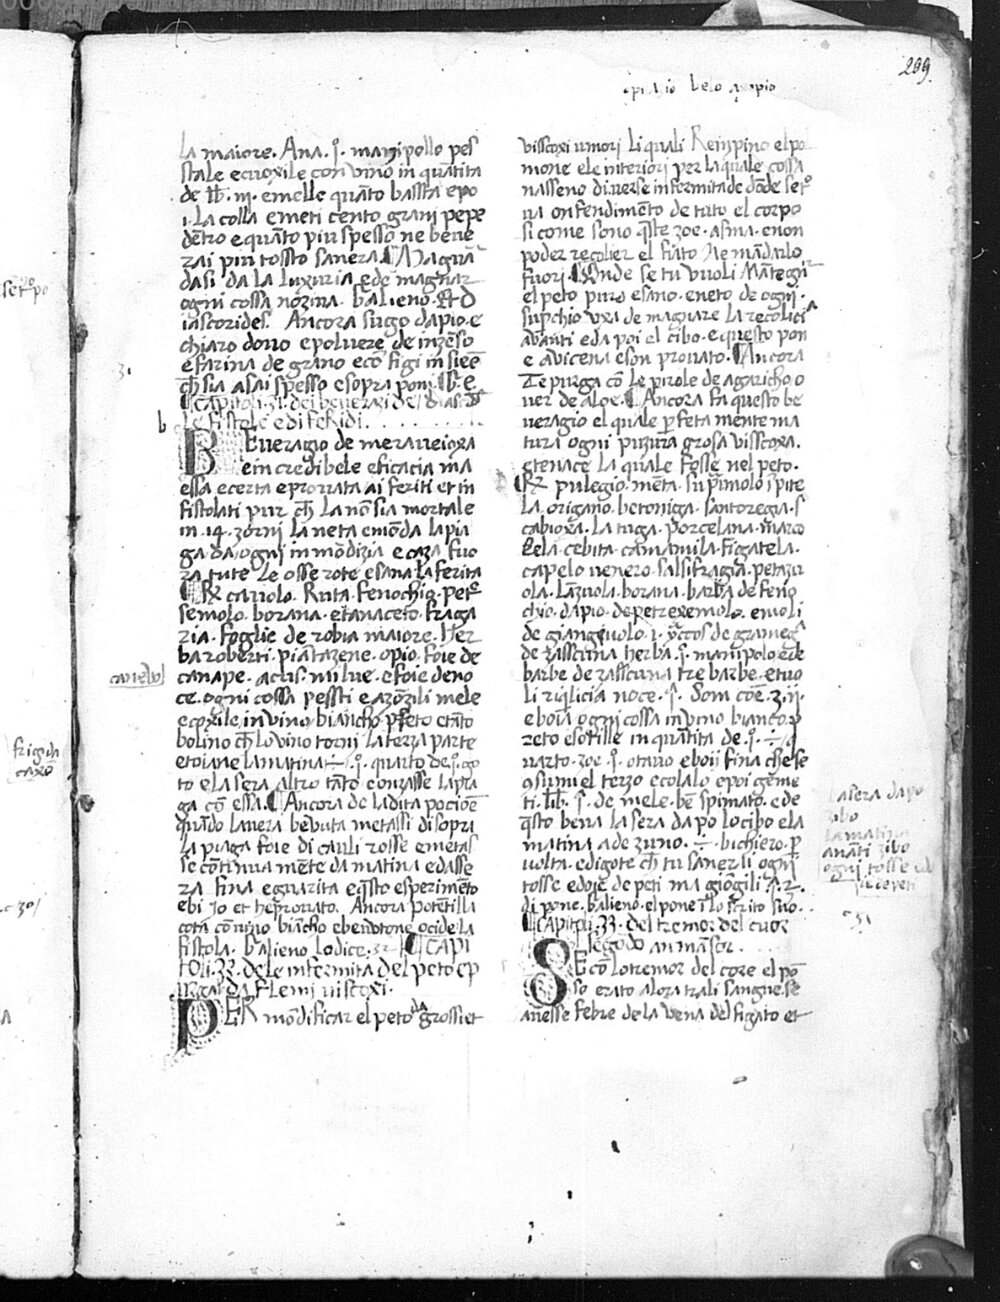 299
la maiore. Ana. j. manipollo pes
stale e cuoxile con vino in quãtita
de lb. iij. e melle quãto bassta e po
i. La colla e meti cento grani pepe
dẽtro e quãto piu spesso ne beue
rai piu tossto sanera. ¶ Ma guã
dasi da la luxuria e de magnar
ogni cossa noziua. Galieno. Et D
iascorides. Ancora sugo dapio. e
chiaro douo e poluere de inzẽso
e farina de grano e cõ figi in sieẽ
ch̃ sia asai spesso e sopra poni.
¶ Capitoli. 31. dei beuerazi de
le fistole e di feridi.
BEueragio de meraueioxa
e in credibele eficacia ma
essa e certa e prouata ai feriti et in
fistolati pur ch̃ la nõ sia mortale
in 14. zorni la neta e mõda la pia
ga da ogni in mõdizia e caza fuo
ra tute le osse rote e sana la ferita
¶ Rx cauolo. Ruta. fenochio. pet
semolo. borana. e tanaceto. fraga
ria. foglie de robia maiore. Her
ba roberti. piantazene. opio. foie de
canape. aclis. milue. e foie de no
ce. ogni cossa pessti e azõzili mele
e coxile in vino biancho pfeto e tãto
bolino ch̃ lo vino torni la terza parte
e toiane la matina ÷ j. quarto de j. go
to e la sera altro tãto e onzasse la pia
ga cõ essa. ¶ Ancora de la dita pocioẽ
quãdo lauera beuuta metassi di sopra
la piaga foie di cauli rosse e metas
se cõtinua mẽte da matina e dasse
ra fina e guarita e q̃sto esperimẽto
ebi Jo et he prouato. Ancora potẽtilla
cota cõ uino biãcho e beuutone ocide la
fistola. Galieno lo dice. 32 ¶ Capi
toli. 32. de le infermita del peto e p
urgar da flemi viscoxi.
PER mõdificar el peto da grossi et
visscoxi umori li quali Rempino el pol
mone e le interiori per la quale cossa
nasseno diuerse infermitade dõde se tr
ua onfendimẽto de tuto el corpo
si come sono q̃ste zoe. asma. e non
poder recolier el fiato ne mãdarlo
fuori. ¶ Onde se tu vuoli mãtegnir
el peto puro e sano. e neto de ogni.
supchio vxa de magiare la recolicia
auãti e da poi el cibo. e questo pon
e auicena e son prouato. ¶ Ancora
Te purga cõ le pirole de agaricho o
uer de aloe. ¶ Ancora fa questo be
ueragio el quale pfeta mente ma
tura ogni puzura grosa visscoxa.
e tenace la quale fosse nel peto.
Rx pulegio. mẽta. supimolo spite
la. origano. betoniga. santoregia. s
cabioxa. latuga. porcelana. marco
rela. cebita. camamila. figatela.
capelo uenero. salsifragia. petazu
ola. lãzuola. borana. barba de feno
chio. dapio. de petrexemolo. e uoli
de giangeuolo. i. yccos de grameg
de zasscuna herba. j. manipolo e de
barbe de zasscuna tre barbe. e tuo
li riqlicia noce. j. Som cõe. 3. ij.
e boia ogni cossa in vino bianco. p
reto e sotille in quãtita de. j. ÷ q
uarto. zoe. j. otauo e boij fina che se
9sumi el terzo e colalo e poi gẽme
ti. lib. j. de mele. bẽ spimato. e de
q̃sto beua la sera da po lo cibo e la
matina a dezuno. ÷ bichiero. p
volta. e digote ch̃ tu saneri ogni
tosse e doie de peti ma giõgili
di pone. Galieno. el pone ĩ lo scrito suo.
¶ Capitoli. 33. del tremor del cuor
segõdo an mãsor.
SE cõ lo tremor del core el põ
so erato alora trali sangue. se
auesse febre de la vena del figato et
canedu
frigida
caxõ
la sera da po
cibo
la matina
auãti zibo
ogni tosse